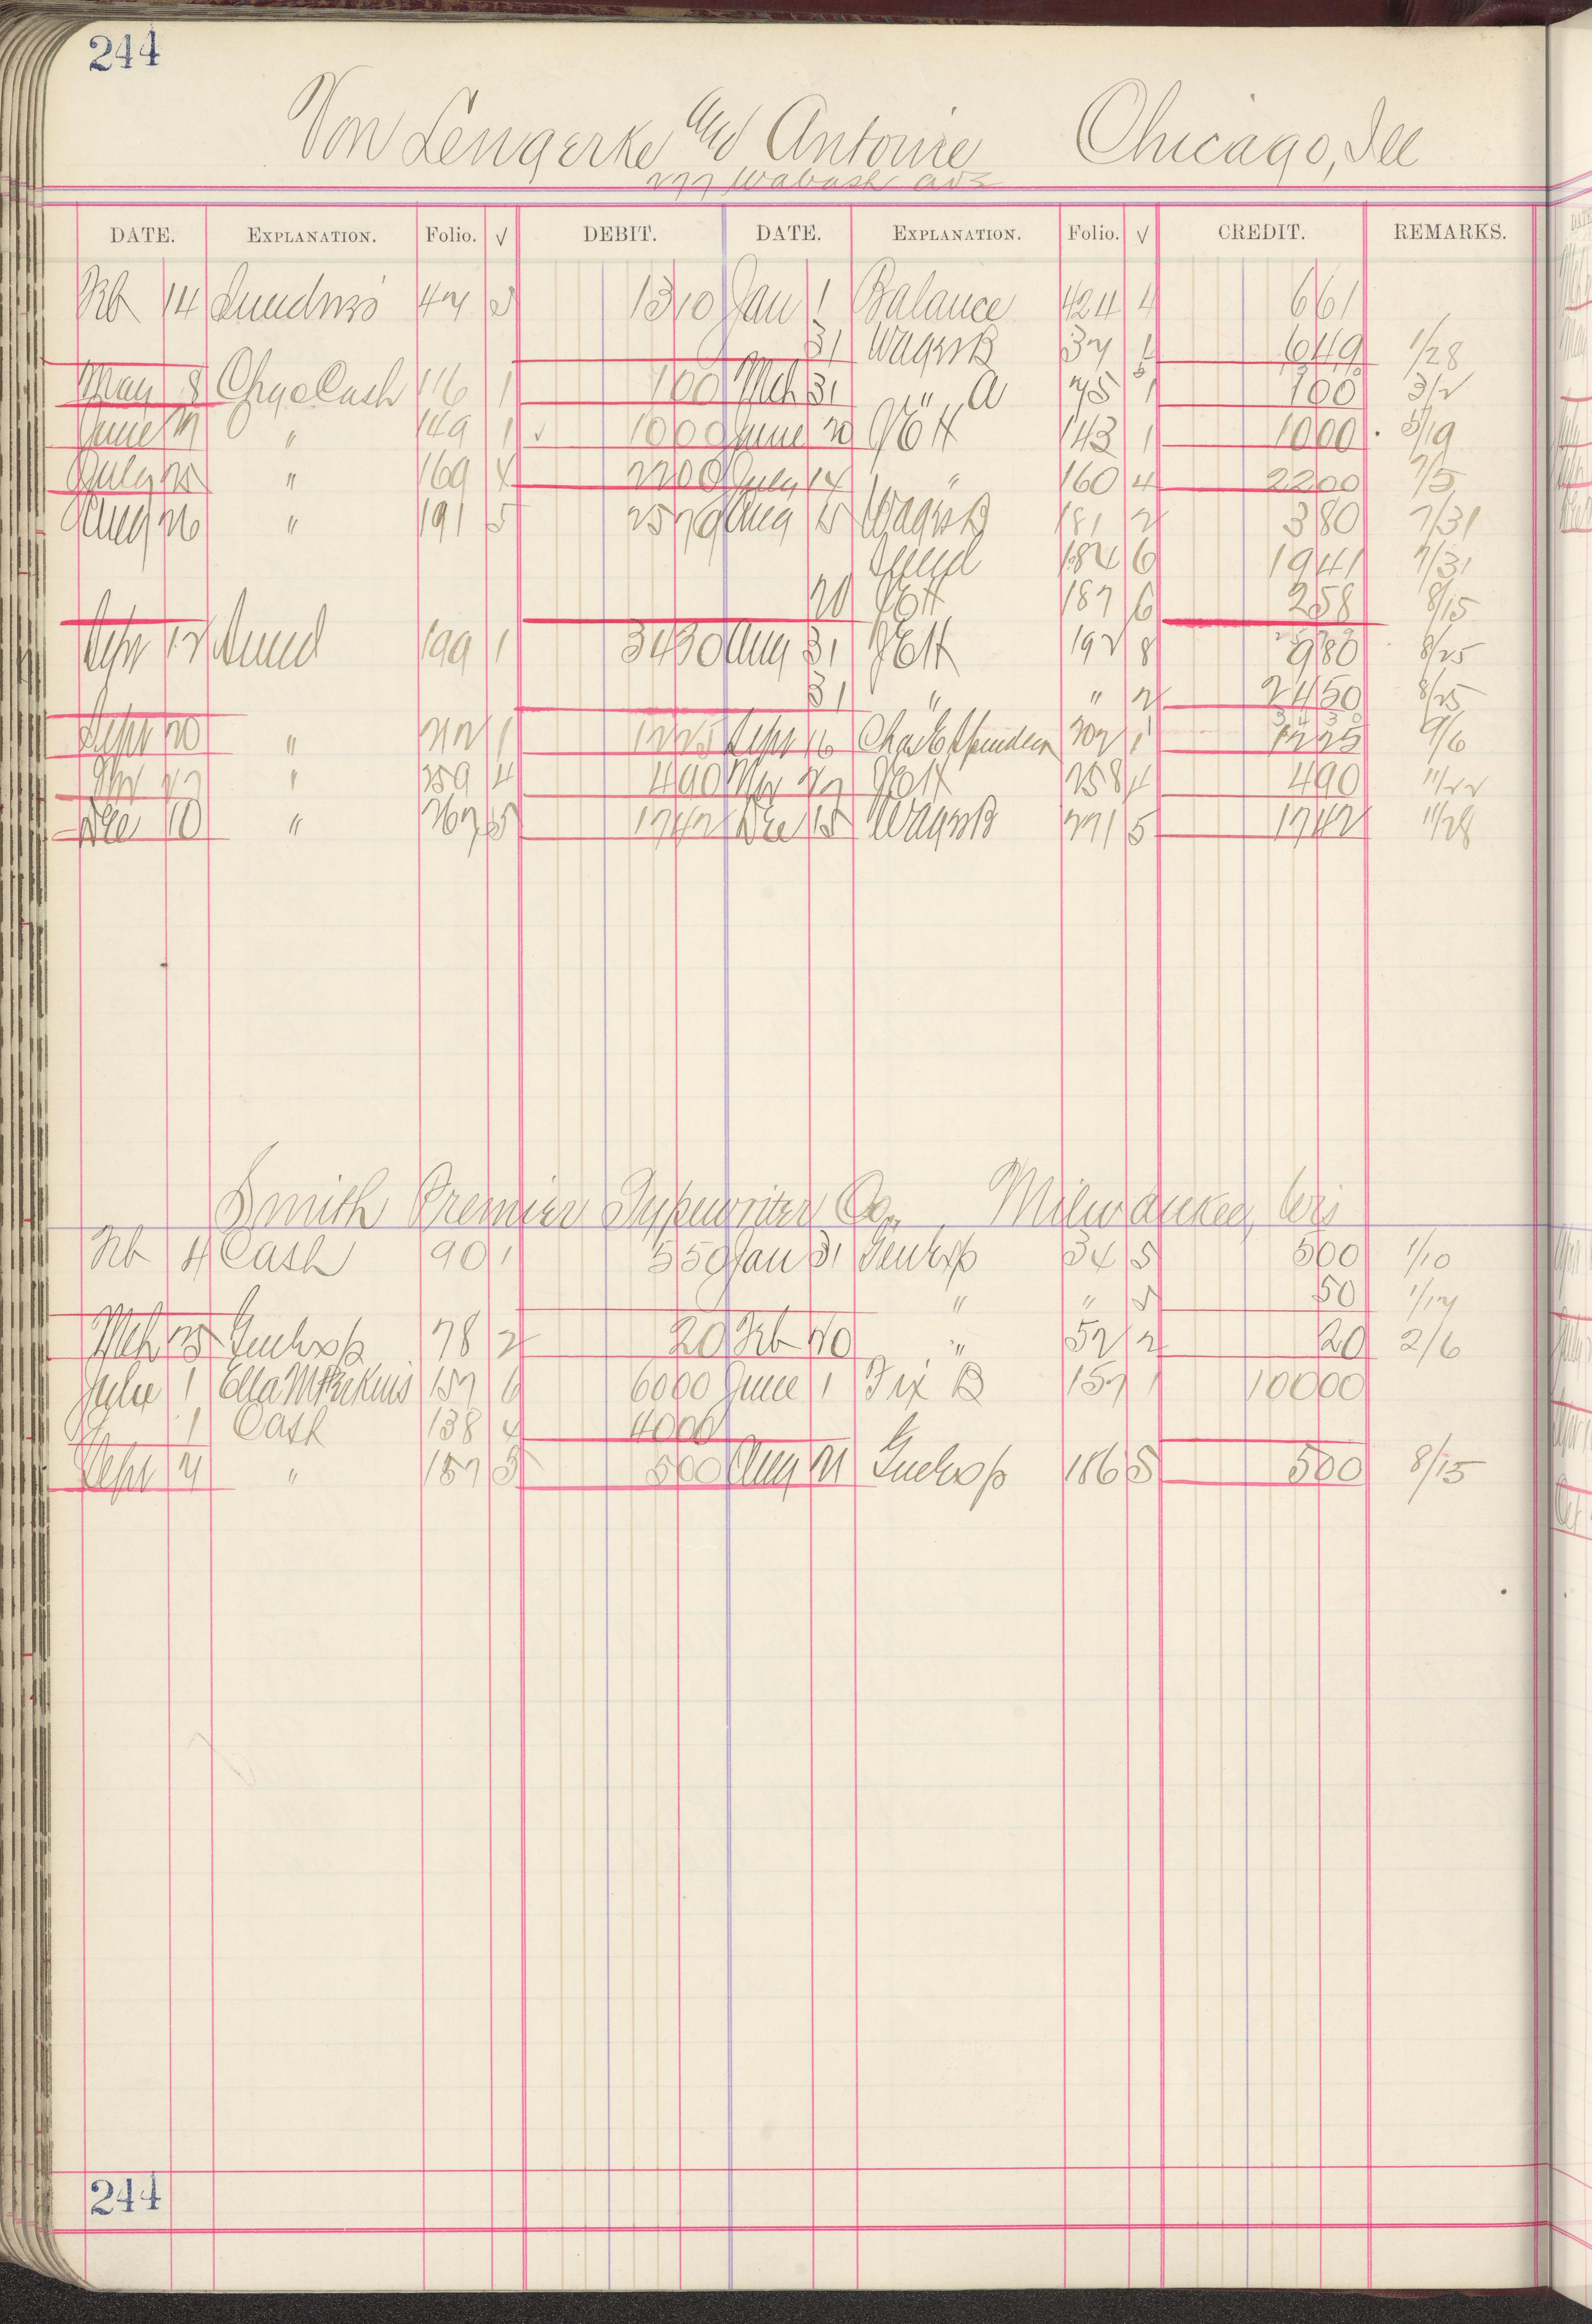 244
Von Lengerke and Antoine Chicago, Ill
277 Wabash Ave
DATE. EXPLANATION. Folio. √ DEBIT. DATE. EXPLANATION. Folio. √ CREDIT. REMARKS.
Feb 14 47 1310 Jan 1 Balance 424 4 661
31 37 649 1/28
May 8 Chgo Cash 116 1 100 Mch 31 " 75 1 100 3/2
June 21 " 149 1 √ 1000 June 20 143 1 1000 5/19
July 25 " 169 4 2200 July 14 " 160 4 2200 7/5
Aug 26 " 191 5 2579 Aug 15 181 2 380 7/31
184 6 1941 7/31
20 187 6 258 8/15
Sep 199 1 3430 Aug 31 192 8 980 8/25
31 " " 2 2450 8/25
Sept 20 " 212 1 1225 Sept 16 207 1 1225 9/6
" 259 4 490 258 4 490 11/22
Dec 10 " 267 5 1742 Dec 15 271 5 1742 11/28
Smith Premier Typewriter Co. Milwaukee, Wis
Feb 4 Cash 90 1 550 Jan 31 34 5 500 1/10
" " 5 50 1/17
Mch 25 78 2 20 Feb 20 " 52 2 20 2/6
1 Ella M Perkins 157 6 6000 June 1 157 1 10000
1 Cash 138 4 4000
Sept 21 " 187 5 500 Aug 21 186 5 500 8/15
244